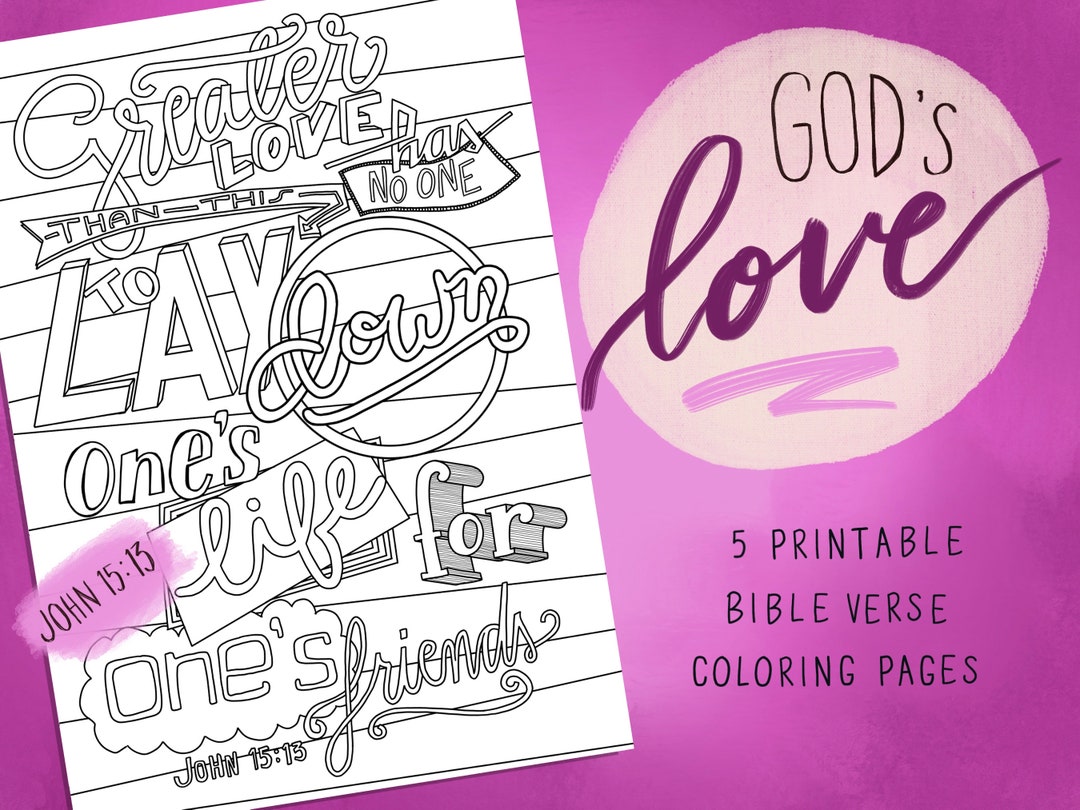 Greater
LOVE has
NO ONE
THAN-THIS
TO
LAY down
One's
life for
one's friends
JOHN 15:13
JOHN 15:13
GOD's
love
5 PRINTABLE
BIBLE VERSE
COLORING PAGES